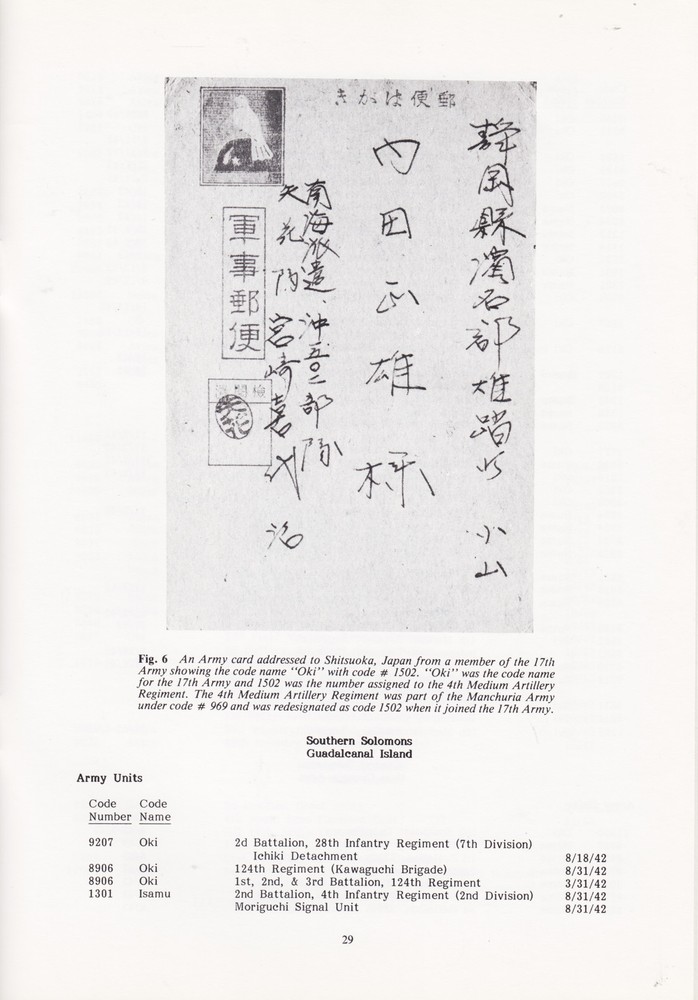 郵便はかき
静岡縣濱名郡雄踏町 小山
内田正雄様
南海派遣、沖一五〇二部隊
矢花隊 宮崎喜代治
軍事郵便
検閲済
矢花
Fig. 6 An Army card addressed to Shitsuoka, Japan from a member of the 17th
Army showing the code name "Oki" with code # 1502. "Oki" was the code name
for the 17th Army and 1502 was the number assigned to the 4th Medium Artillery
Regiment. The 4th Medium Artillery Regiment was part of the Manchuria Army
under code # 969 and was redesignated as code 1502 when it joined the 17th Army.
Southern Solomons
Guadalcanal Island
Army Units
Code Code
Number Name
9207 Oki 2d Battalion, 28th Infantry Regiment (7th Division)
Ichiki Detachment 8/18/42
8906 Oki 124th Regiment (Kawaguchi Brigade) 8/31/42
8906 Oki 1st, 2nd, & 3rd Battalion, 124th Regiment 3/31/42
1301 Isamu 2nd Battalion, 4th Infantry Regiment (2nd Division) 8/31/42
Moriguchi Signal Unit 8/31/42
29